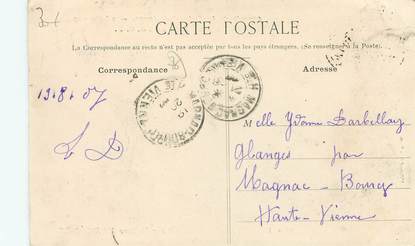 CARTE POSTALE
La Correspondance au recto n'est pas acceptée par tous les pays étrangers. (Se renseigner à la Poste).
Correspondance
Adresse
19.8.07
L D
Melle Yvonne
Glanges par
Magnac-Bourg
Haute-Vienne